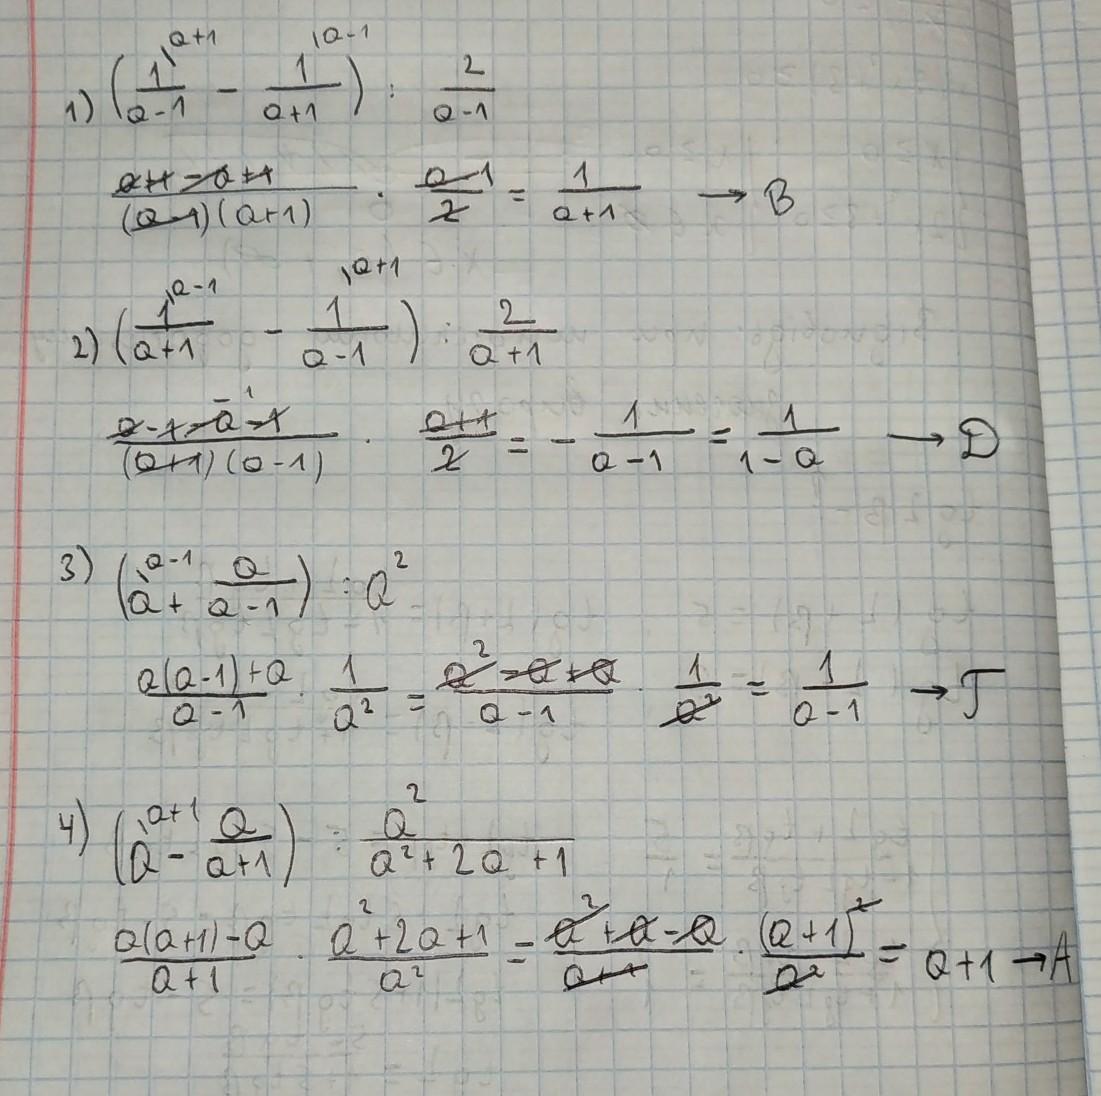 1) (1/(a-1) \a+1 - 1/(a+1) \a-1) : 2/(a-1)
(a+1-a+1)/((a-1)(a+1)) · (a-1)/2 = 1/(a+1) → B
2) (1/(a+1) \a-1 - 1/(a-1) \a+1) : 2/(a+1)
(a-1-a-1)/((a+1)(a-1)) · (a+1)/2 = - 1/(a-1) = 1/(1-a) → D
3) (a \a-1 + a/(a-1)) : a²
(a(a-1)+a)/(a-1) · 1/a² = (a²-a+a)/(a-1) · 1/a² = 1/(a-1) → Г
4) (a \a+1 - a/(a+1)) : a²/(a²+2a+1)
(a(a+1)-a)/(a+1) · (a²+2a+1)/a² = (a²+a-a)/(a+1) · (a+1)²/a² = a+1 → A